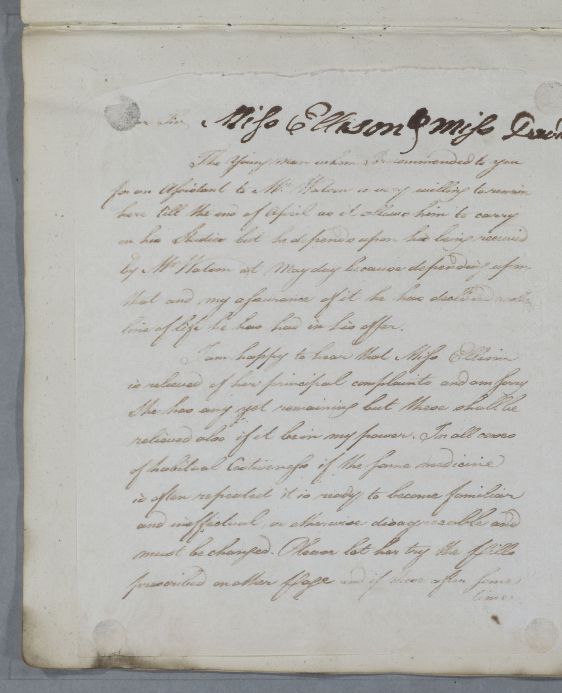 Dear Sir, Miss Ellison & Miss
The Young man whom I recommended to you
for an Assistant to Mr Watson is very willing to remain
here till the end of April as it allows him to carry
on his Studies but he depends upon his being received
by Mr Watson at Mayday because depending upon
that and my assurance of it he has declined another
line of life he has had in his offer.
I am happy to hear that Miss Ellison
is relieved of her principal complaints and am sorry
she has any yet remaining but these shall be
relieved also if it be in my power. In all cases
of habitual Costiveness if the same medicine
is often repeated it is ready to become familiar
and ineffectual, or otherwise disagreeable and
must be changed. Please let her try the Pills
prescribed on other Page and if ever after some
time